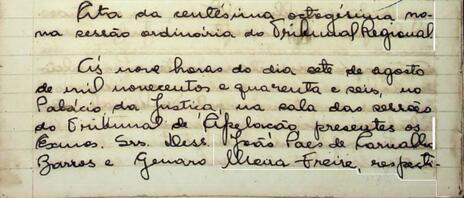 Ata da centésima octogésima no-
na sessão ordinária do Tribunal Regional
Às nove horas do dia sete de agosto
de mil novecentos e quarenta e seis, no
Palácio da Justiça, na sala das sessão
do Tribunal de Apelação, presentes os
Exmos. Srs. Dess. João Paes de Carvalho
Barros e Genaro Meira Freire, respecti-